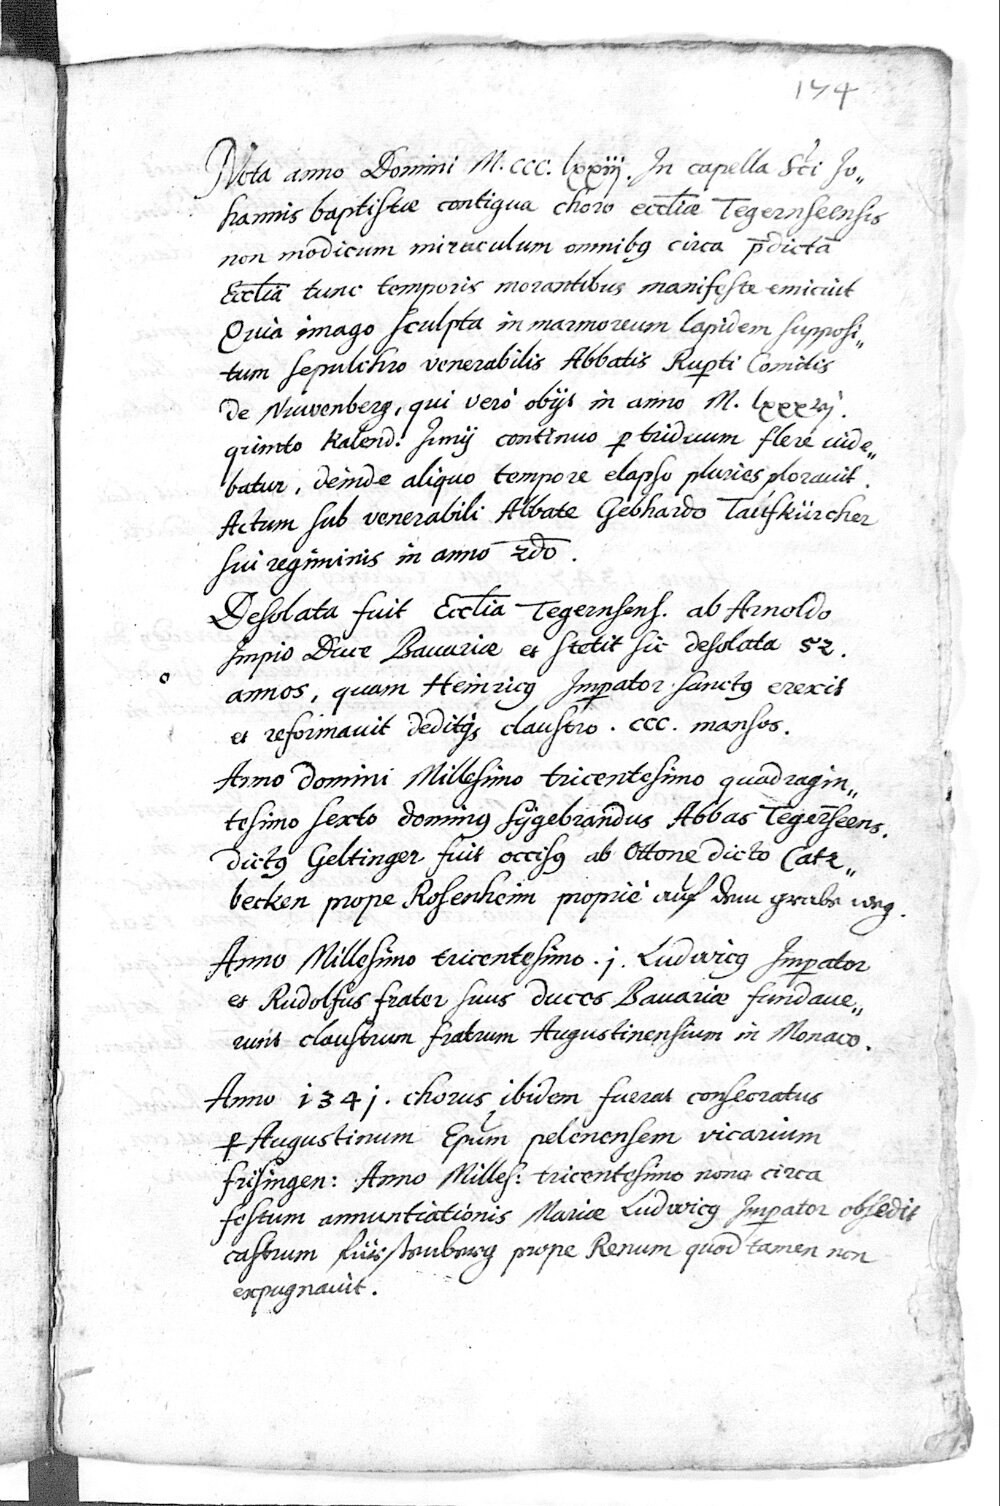 174
Nota anno Domini M. CCC. lxxiij. In capella Sc̃i Jo„
hannis baptistæ contigua choro eccłiæ Tegernseensis
non modicum miraculum omnibꝰ circa p̃dictã
Eccłiã tunc temporis morantibus manifeste emicuit
Quia imago sculpta in marmoreum lapidem supposi„
tum sepulchro venerabilis Abbatis Ruꝑti Comitis
de Nuwenberg, qui verò obijt in anno M. lxxxvj.
quinto Kalend: Junij continuo ꝑ triduum flere vide„
batur, deinde aliquo tempore elapso pluries plorauit.
Actum sub venerabili Abbate Gebhardo Taufkürcher
sui regiminis in anno 2do.
Desolata fuit Eccłia Tegernsens. ab Arnoldo
Impio Duce Bauariæ et stetit sic desolata 52.
annos, quam Heinricꝰ Imꝑator sanctꝰ erexit
et reformauit deditqꝫ claustro . CCC. mansos.
Anno domini Millesimo tricentesimo quadragin„
tesimo sexto dominꝰ Sÿgebrandus Abbas Tegerñseens.
dictꝰ Geltinger fuit occisꝰ ab Ottone dicto Catz„
becken prope Rosenheim propriè auf dem grabe weg.
Anno Millesimo tricentesimo . j. Ludwicꝰ Imꝑator
et Rudolfus frater suus duces Bauariæ fundaue„
runt claustrum fratrum Augustinensium in Monaco.
Anno 1341. chorus ibidem fuerat consecratus
ꝑ Augustinum Epũm pelenensem vicarium
frisingen: Anno Milles: tricentesimo nono circa
festum annuntiationis Mariæ Ludwicꝰ Imꝑator obsedit
castrum fürstenberg prope Renum quod tamen non
expugnauit.